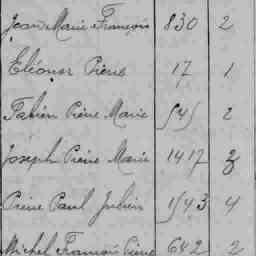 Jean Marie François 830 2
Eléonor Pierre 17 1
Fabien Pierre Marie 545 2
Joseph Pierre Marie 1417 3
Pierre Paul Julien 1543 4
Michel François Pierre 642 2